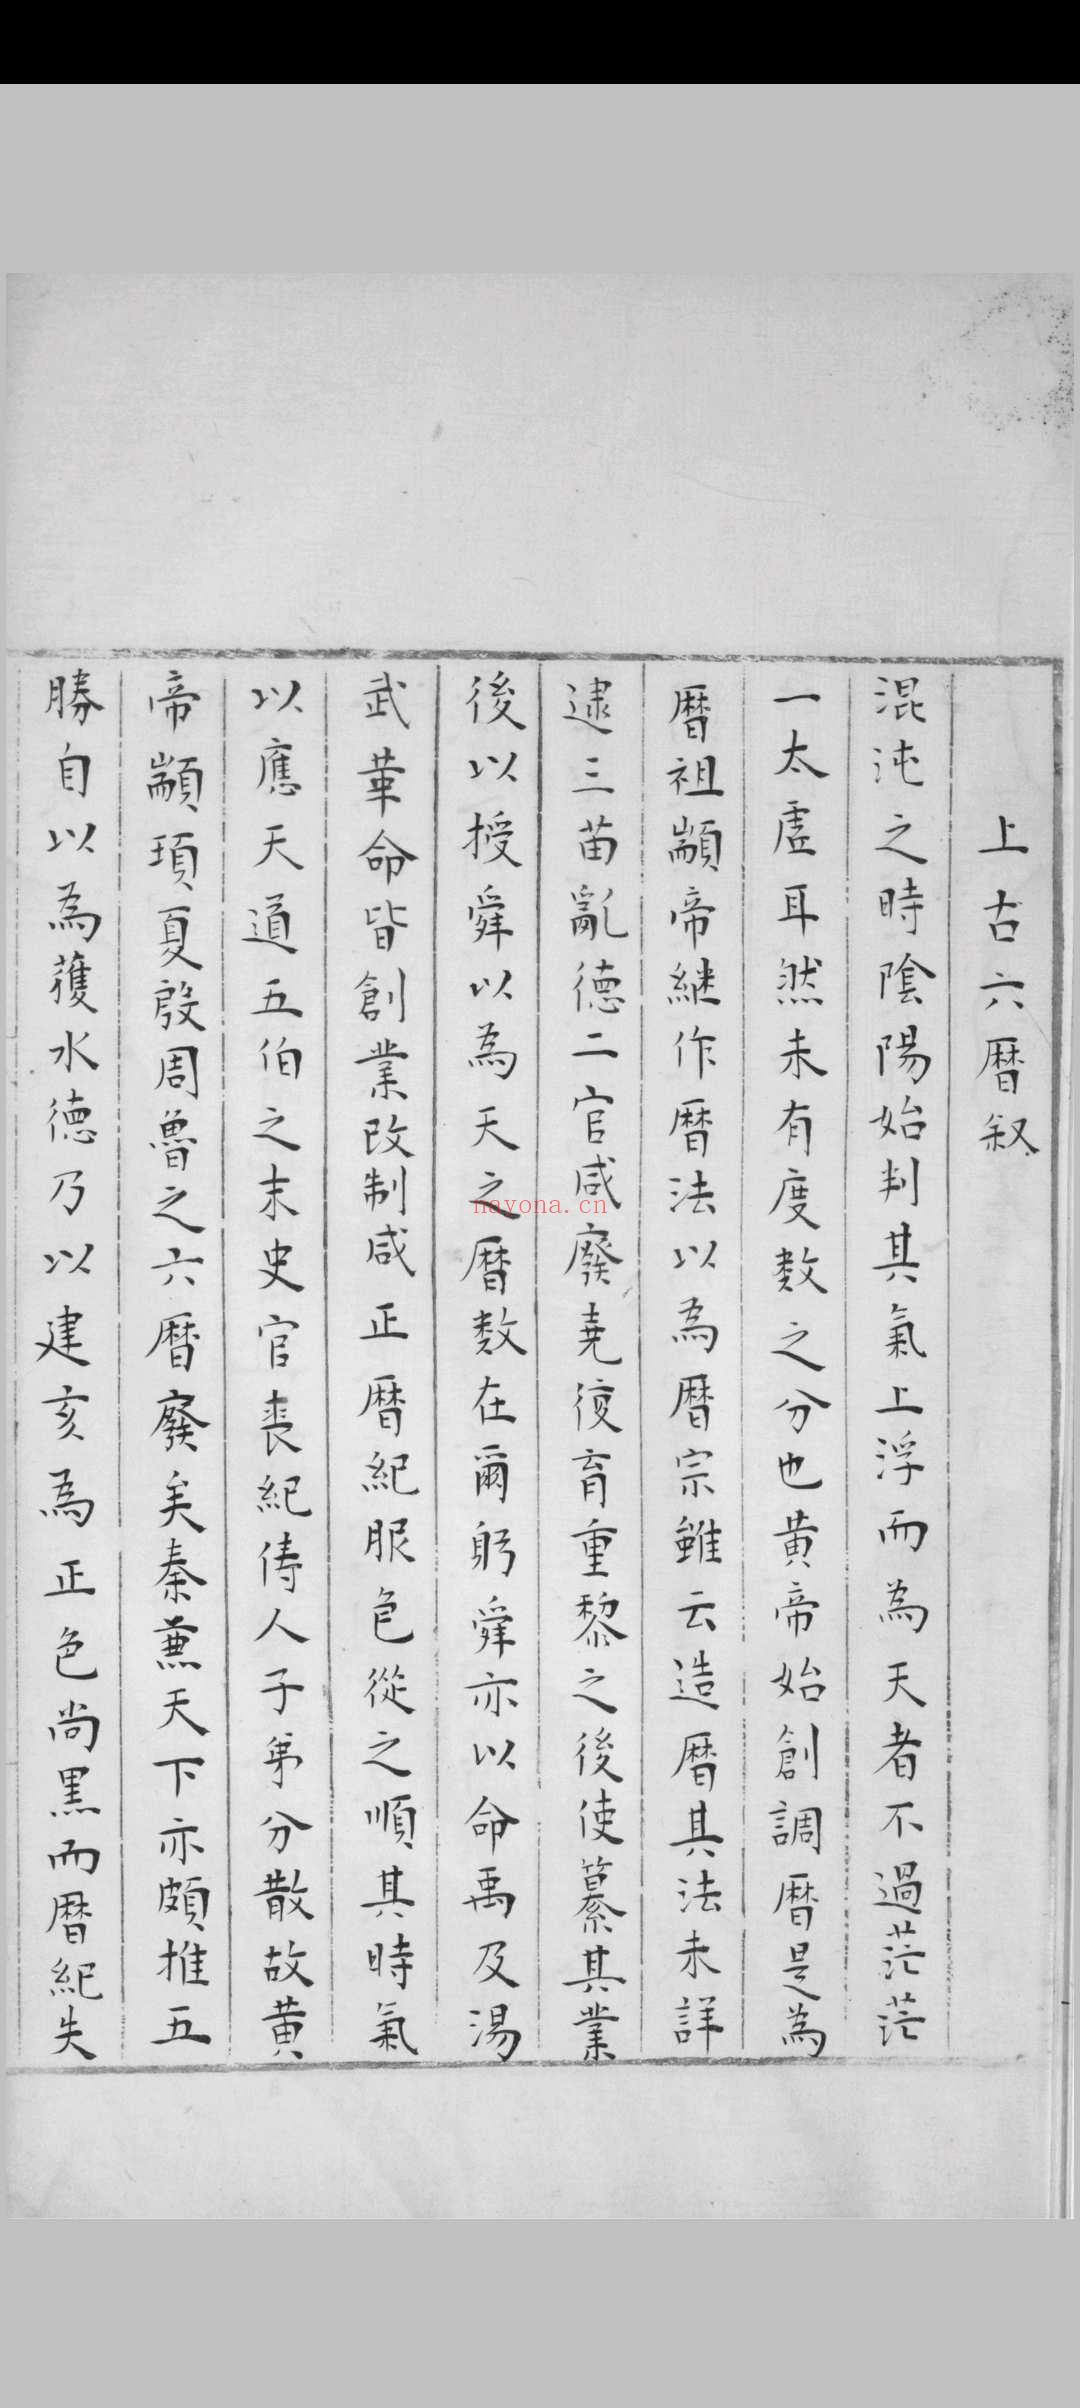 上古六曆叙
混沌之時陰陽始判其氣上浮而為天者不過茫茫
一太虛耳然未有度数之分也黄帝始創調曆是為
曆祖顓帝継作曆法以為曆宗雖云造曆其法未詳
逮三苗亂德二官咸廢堯復育重黎之後使纂其業
後以授舜以為天之曆数在爾躬舜亦以命禹及湯
武革命皆創業改制咸正曆紀服色從之順其時氣
以應天道五伯之末史官喪紀俦人子弟分散故黄
帝顓頊夏殷周魯之六曆廢矣秦蕙天下亦頗推五
勝自以為獲水德乃以建亥為正色尚黒而曆紀失
nayona.cn